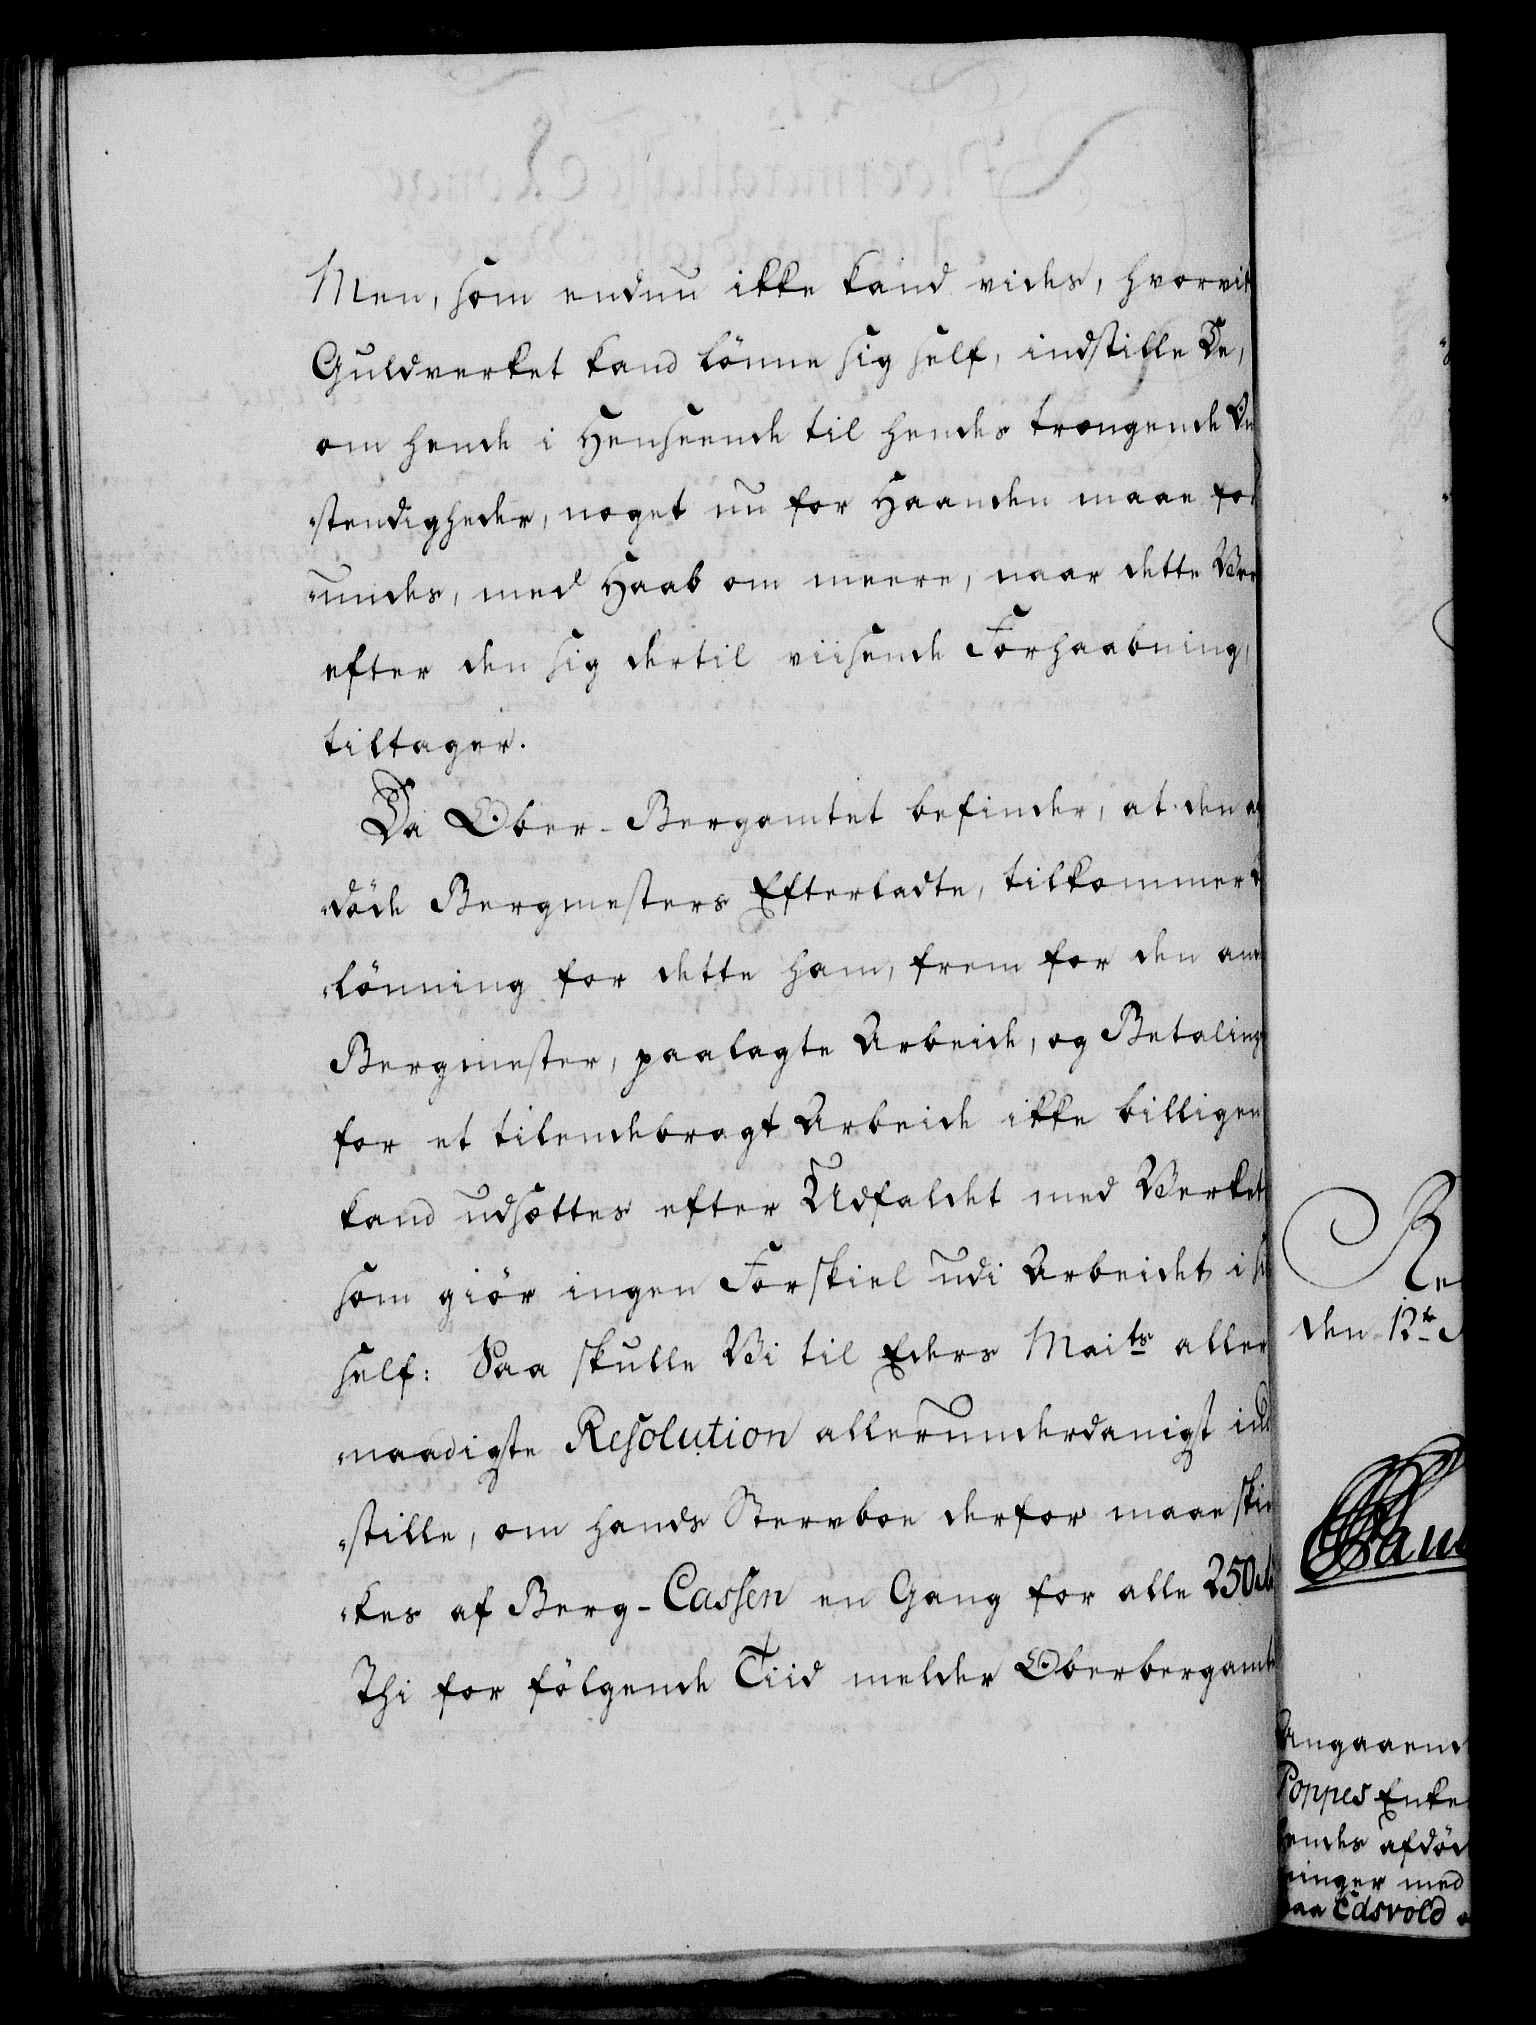 Men, som endnu ikke kand vides, hvorvit
Guldverket kand lönne sig self, indstille De,
om hende i Henseende til hendes trængende Um
„stendigheder, noget nu for Haanden maae for
„undes, med Haab om meere, naar dette Ver
efter den sig dertil viisende Forhaabning,
tiltager.
Da Ober-Bergamtet befinder, at den af
„döde Bergmesters Efterladte, tilkommer
„lönning for dette ham, frem for den and
Bergmester, paalagte Arbeide, og Betaling
for et tilendebragt Arbeide ikke billigen
kand udsættes efter Udfaldet med Verket
som giör ingen Forskiel udi Arbeidet i sig
self: Saa skulle Vi til Eders Maits aller
„naadigste Resolution allerunderdanigst ind
„stille, om hands Stervboe derfor maae skien
„kes af Berg-Cassen en Gang for alle 250
Thi for fölgende Tiid melder Oberbergamte
Re
den 12te
Angaaend
Poppes Enke
hendes afdöd
ninger med
paa Edsvold